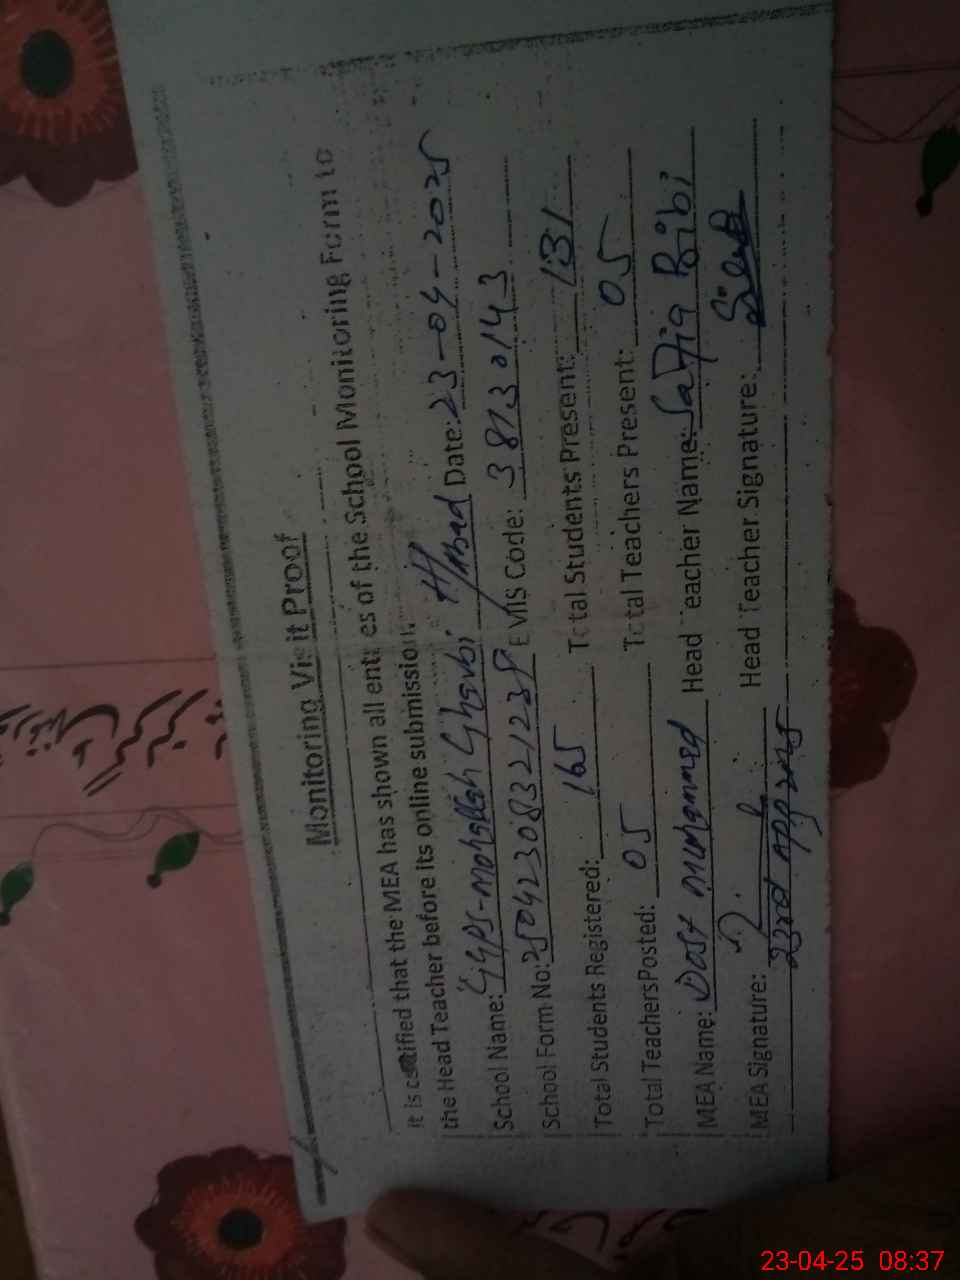 Monitoring Visit Proof
It is certified that the MEA has shown all entries of the School Monitoring Form to
the Head Teacher before its online submission.
School Name: GGPS-Mohallah Gharbi H/Abad Date: 23-04-2025
School Form No: EMIS Code: 38130143
Total Students Registered: 165 Total Students Present: 131
Total Teachers Posted: 05 Total Teachers Present: 05
MEA Name: Dost Muhammed Head Teacher Name: Safia Bibi
MEA Signature: Head Teacher Signature:
23-04-25 08:37